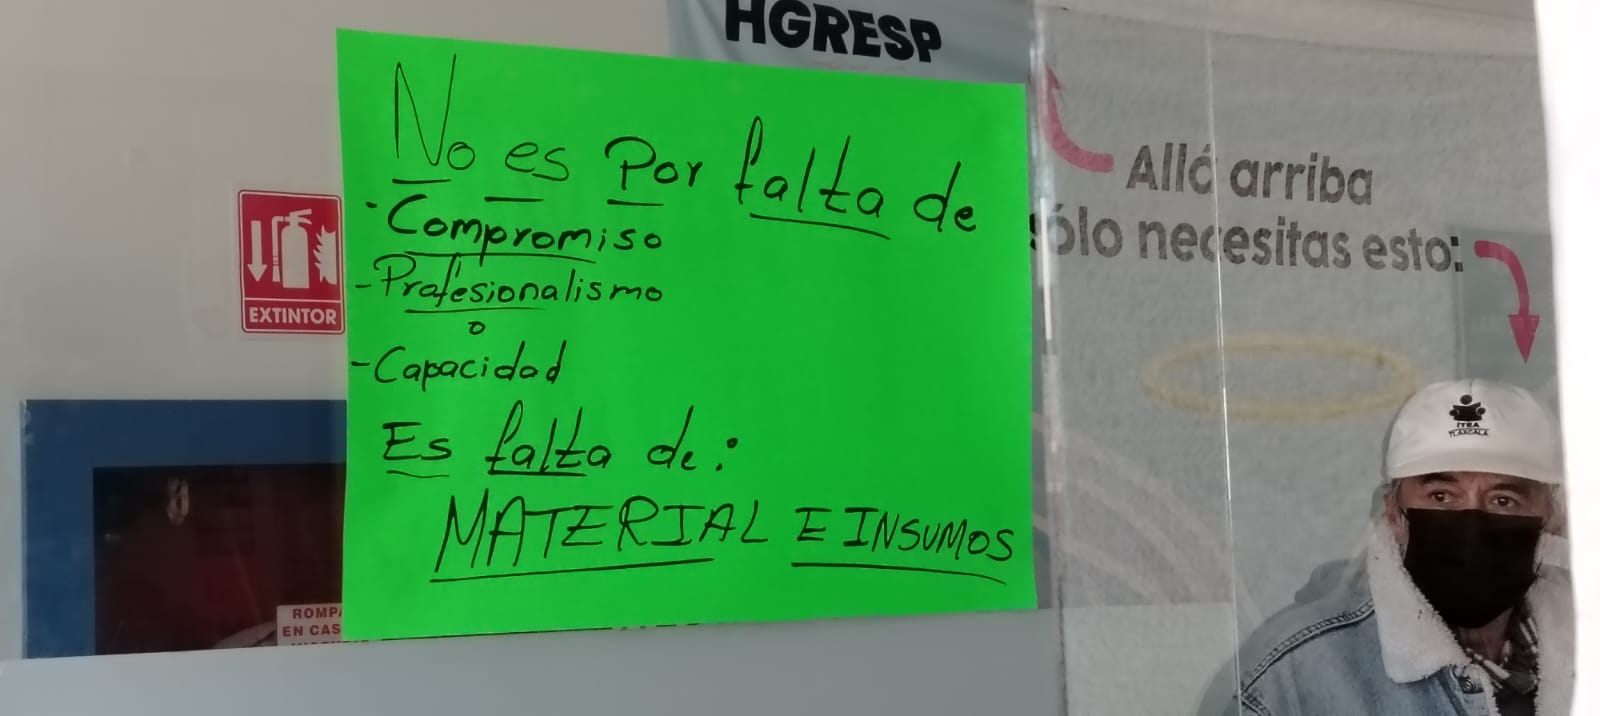 HGRESP
No es Por falta de
- Compromiso
- Profesionalismo
o
- Capacidad
Es falta de:
MATERIAL E INSUMOS
EXTINTOR
ROMPA
EN CAS
Allá arriba
sólo necesitas esto:
ITEA
TLAXCALA